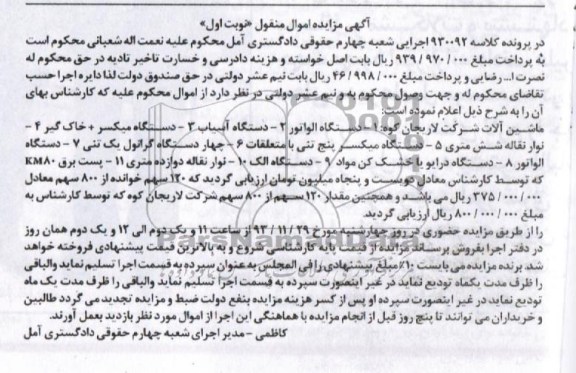 آگهی مزایده اموال منقول «نوبت اول»
در پرونده کلاسه ۹۳۰۰۹۲ اجرایی شعبه چهارم حقوقی دادگستری آمل محکوم علیه نعمت اله شعبانی محکوم است
به پرداخت مبلغ ۰۰۰ / ۹۷۰ / ۹۳۹ ریال بابت اصل خواسته و هزینه دادرسی و خسارت تاخیر تادیه در حق محکوم له
نصرت ا... رضایی و پرداخت مبلغ ۰۰۰ / ۹۹۸ / ۴۶ ریال بابت نیم عشر دولتی در حق صندوق دولت لذا دایره اجرا حسب
تقاضای محکوم له و جهت وصول محکوم به و نیم عشر دولتی در نظر دارد از اموال محکوم علیه که کارشناس بهای
آن را به شرح ذیل اعلام نموده است:
ماشین آلات شرکت لاریجان کوه: ۱ - دستگاه الواتور ۲ - دستگاه آسیاب ۳ - دستگاه میکسر + خاک گیر ۴ -
نوار نقاله شش متری ۵ - دستگاه میکسر پنج تنی با متعلقات ۶ - چهار دستگاه گرانول یک تنی ۷ - دستگاه
الواتور ۸ - دستگاه درایو یا خشک کن مواد ۹ - دستگاه الک ۱۰ - نوار نقاله دوازده متری ۱۱ - پست برق KM۸۰
که توسط کارشناس معادل دویست و پنجاه میلیون تومان ارزیابی گردید که ۱۲۰ سهم خوانده از ۸۰۰ سهم معادل
۰۰۰ / ۰۰۰ / ۳۷۵ ریال می باشد و همچنین مقدار ۱۲۰ سهم از ۸۰۰ سهم شرکت لاریجان کوه که توسط کارشناس به
مبلغ ۰۰۰ / ۰۰۰ / ۸۰۰ ریال ارزیابی گردید.
را از طریق مزایده حضوری در روز چهارشنبه مورخ ۲۹ / ۱۱ / ۹۳ از ساعت ۱۱ و یک دوم الی ۱۲ و یک دوم همان روز
در دفتر اجرا بفروش برساند مزایده از قیمت پایه کارشناسی شروع و به بالاترین قیمت پیشنهادی فروخته خواهد
شد برنده مزایده می بایست ۱۰٪ مبلغ پیشنهادی را فی المجلس به عنوان سپرده به قسمت اجرا تسلیم نماید والباقی
را ظرف مدت یکماه تودیع نماید در غیر اینصورت سپرده به قسمت اجرا تسلیم نماید والباقی را ظرف مدت یک ماه
تودیع نماید در غیر اینصورت سپرده او پس از کسر هزینه مزایده بنفع دولت ضبط و مزایده تجدید می گردد طالبین
و خریداران می توانند تا پنج روز قبل از انجام مزایده با هماهنگی این اجرا از اموال مورد نظر بازدید بعمل آورند.
کاظمی - مدیر اجرای شعبه چهارم حقوقی دادگستری آمل